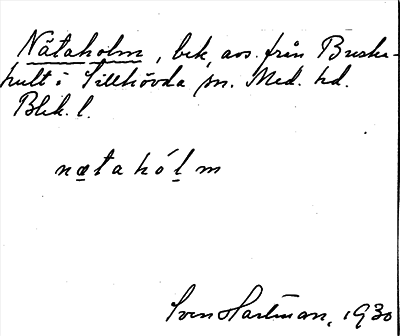 Nätaholm, bek, avs. från Buska-
hult i Tillhövda sn. Med. hd.
Blek. l.
nætahólm
Sven Hartman, 1930